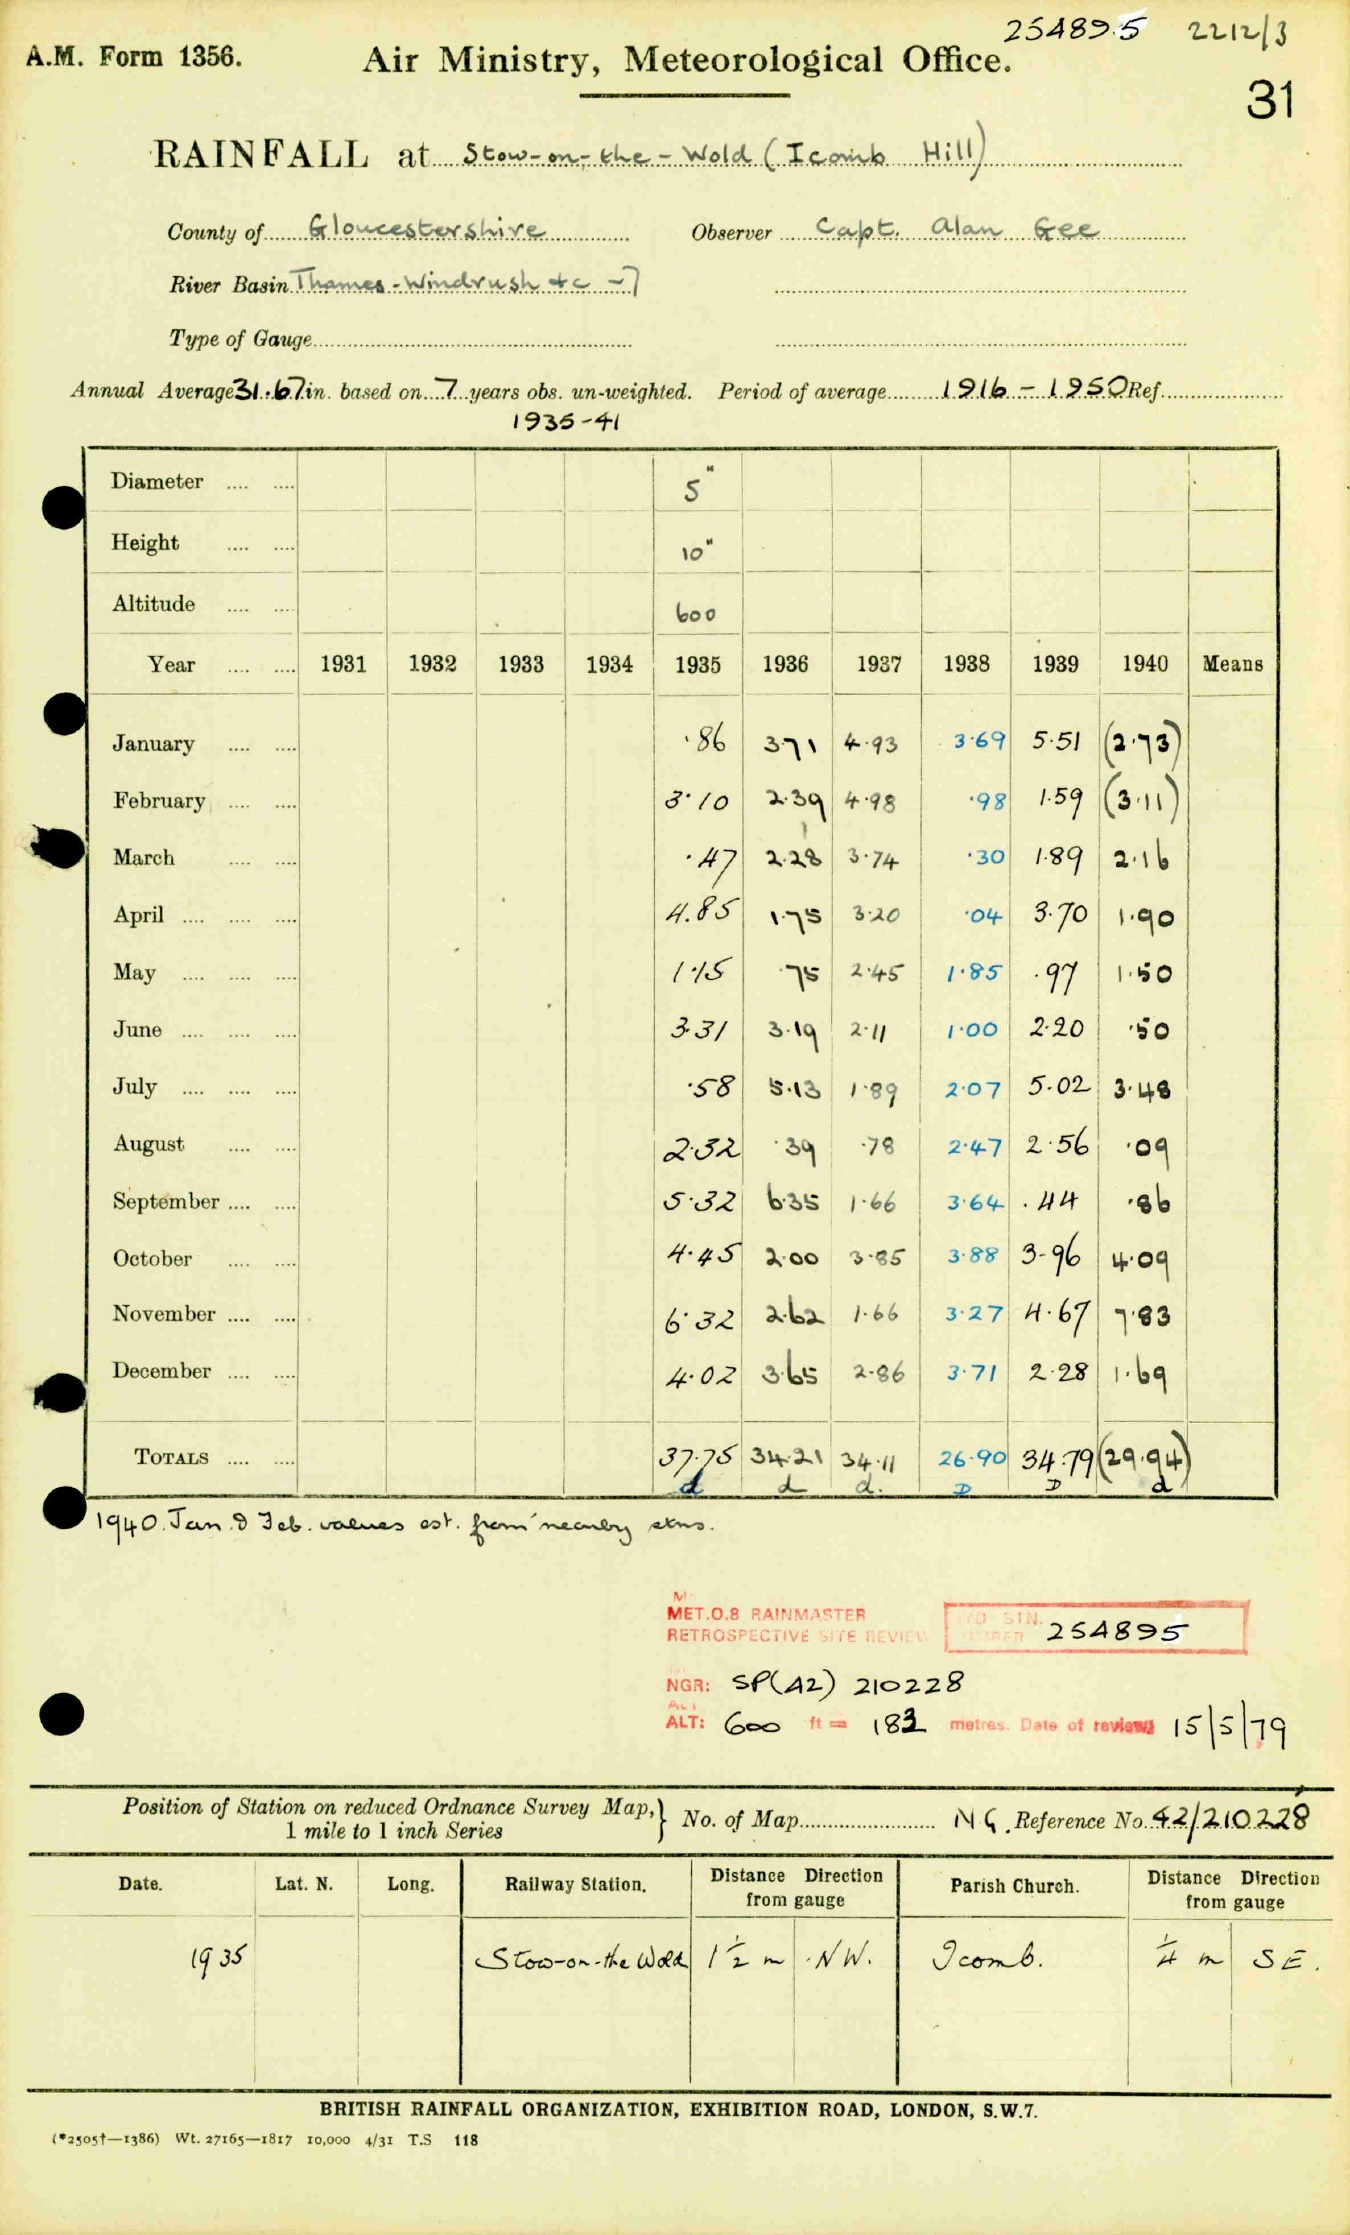 254895 2212/3
A.M. Form 1356. Air Ministry, Meteorological Office.
31
RAINFALL at Stow-on-the-Wold (Icomb Hill)
County of Gloucestershire Observer Capt. Alan Gee
River Basin Thames-Windrush &c -7
Type of Gauge
Annual Average 31.67 in. based on 7 years obs. un-weighted. Period of average 1916 - 1950 Ref.
1935-41
Diameter .... .... 5"
Height .... .... 10"
Altitude .... .... 600
Year .... .... 1931 1932 1933 1934 1935 1936 1937 1938 1939 1940 Means
January .... .... ·86 3·71 4·93 3·69 5·51 (2·73)
February .... .... 3·10 2·39 4·98 ·98 1·59 (3·11)
March .... .... ·47 2·28 3·74 ·30 1·89 2·16
April .... .... .... 4.85 1·75 3·20 ·04 3·70 1·90
May .... .... .... 1·15 ·75 2·45 1·85 ·97 1·50
June .... .... .... 3·31 3·19 2·11 1·00 2·20 ·50
July .... .... .... ·58 5·13 1·89 2·07 5·02 3·48
August .... .... 2·32 ·39 ·78 2·47 2·56 ·09
September .... .... 5·32 6·35 1·66 3·64 ·44 ·86
October .... .... 4·45 2·00 3·85 3·88 3·96 4·09
November .... .... 6·32 2·62 1·66 3·27 4·67 7·83
December .... .... 4·02 3·65 2·86 3·71 2·28 1·69
TOTALS .... .... 37·75 34·21 34·11 26·90 34·79 (29·94)
d d d. D D d
1940. Jan. & Feb. values est. from nearby stns.
MET.O.8 RAINMASTER
RETROSPECTIVE SITE REVIEW STN. 254895
NGR: SP(42) 210228
ALT: 600 ft = 183 metres. Date of review 15/5/79
Position of Station on reduced Ordnance Survey Map,
1 mile to 1 inch Series } No. of Map NG. Reference No. 42/210228
Date. Lat. N. Long. Railway Station. Distance Direction from gauge Parish Church. Distance Direction from gauge
1935 Stow-on-the Wold 1½ m NW. Icomb. ¼ m SE.
BRITISH RAINFALL ORGANIZATION, EXHIBITION ROAD, LONDON, S.W.7.
(*2505†—1386) Wt. 27165—1817 10,000 4/31 T.S 118